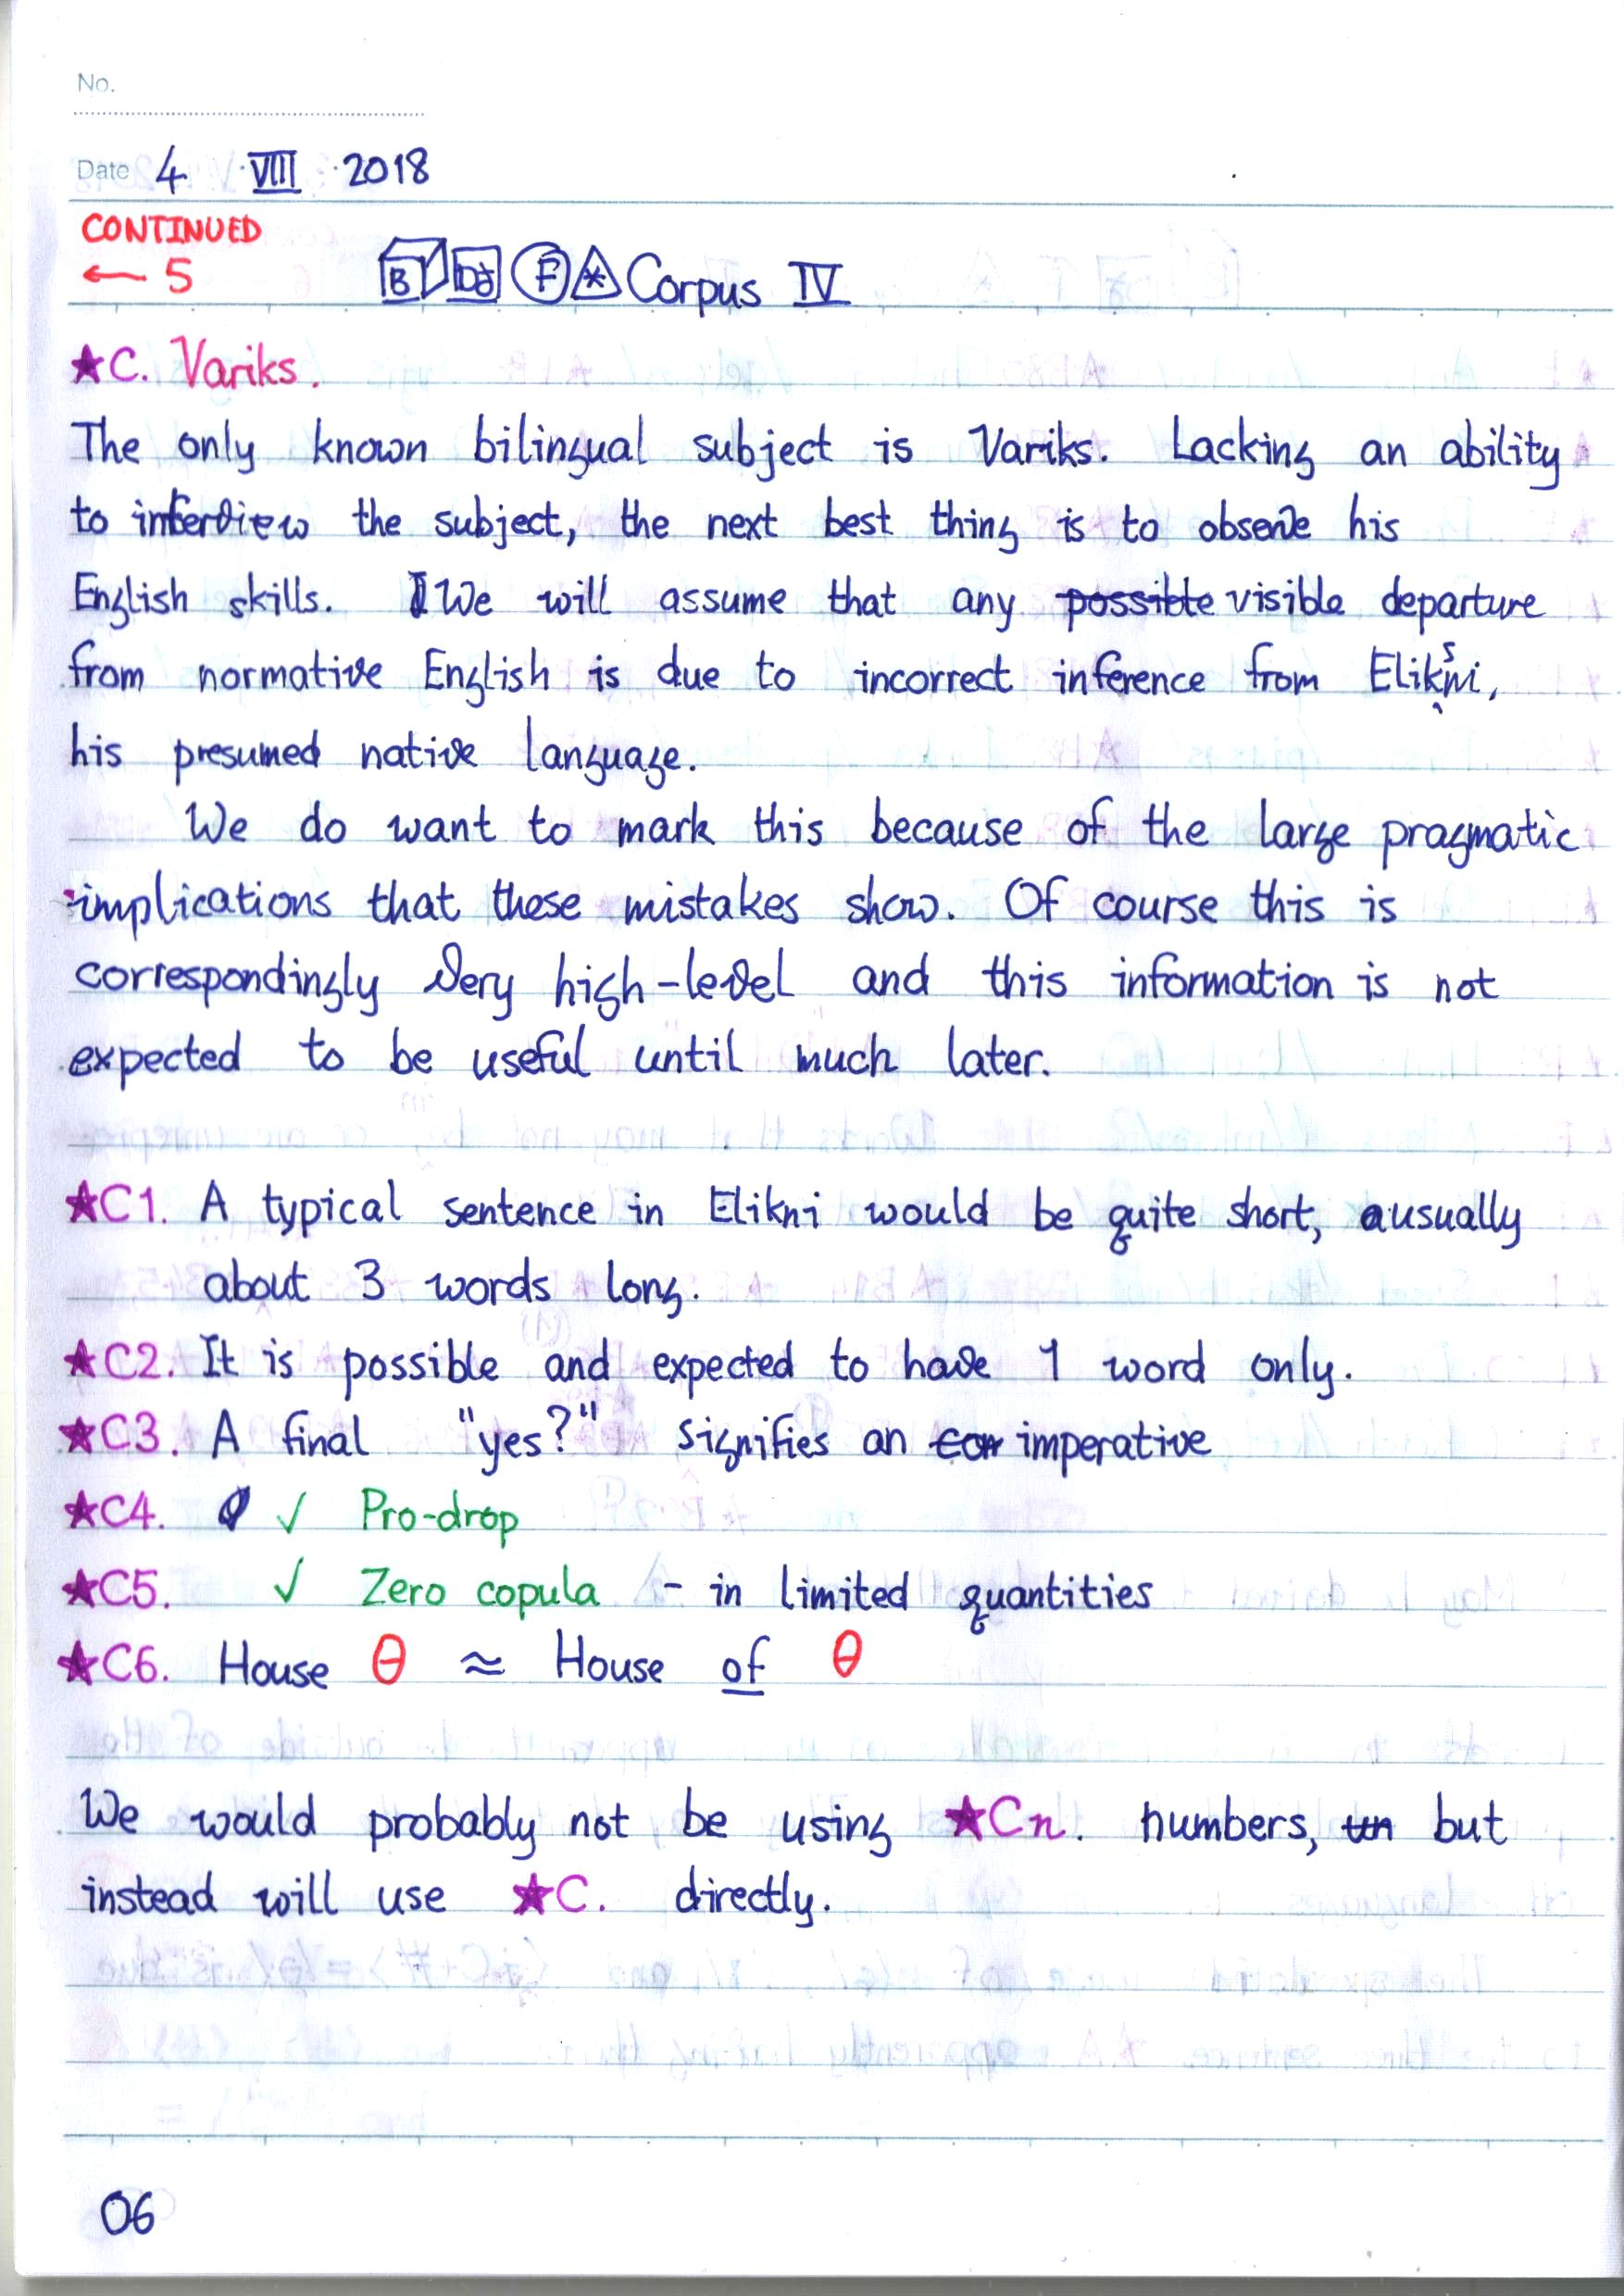 No.
Date 4 · VIII · 2018
CONTINUED
← 5
B F * Corpus IV
★C. Variks.
The only known bilingual subject is Variks. Lacking an ability
to interview the subject, the next best thing is to observe his
English skills. We will assume that any possible visible departure
from normative English is due to incorrect inference from Eliksni,
his presumed native language.
We do want to mark this because of the large pragmatic
implications that these mistakes show. Of course this is
correspondingly very high-level and this information is not
expected to be useful until much later.
★C1. A typical sentence in Elikni would be quite short, usually
about 3 words long.
★C2. It is possible and expected to have 1 word only.
★C3. A final "yes?" signifies an com imperative
★C4. ✓ Pro-drop
★C5. ✓ Zero copula - in limited quantities
★C6. House θ ≈ House of θ
We would probably not be using ★Cn. numbers, but
instead will use ★C. directly.
06